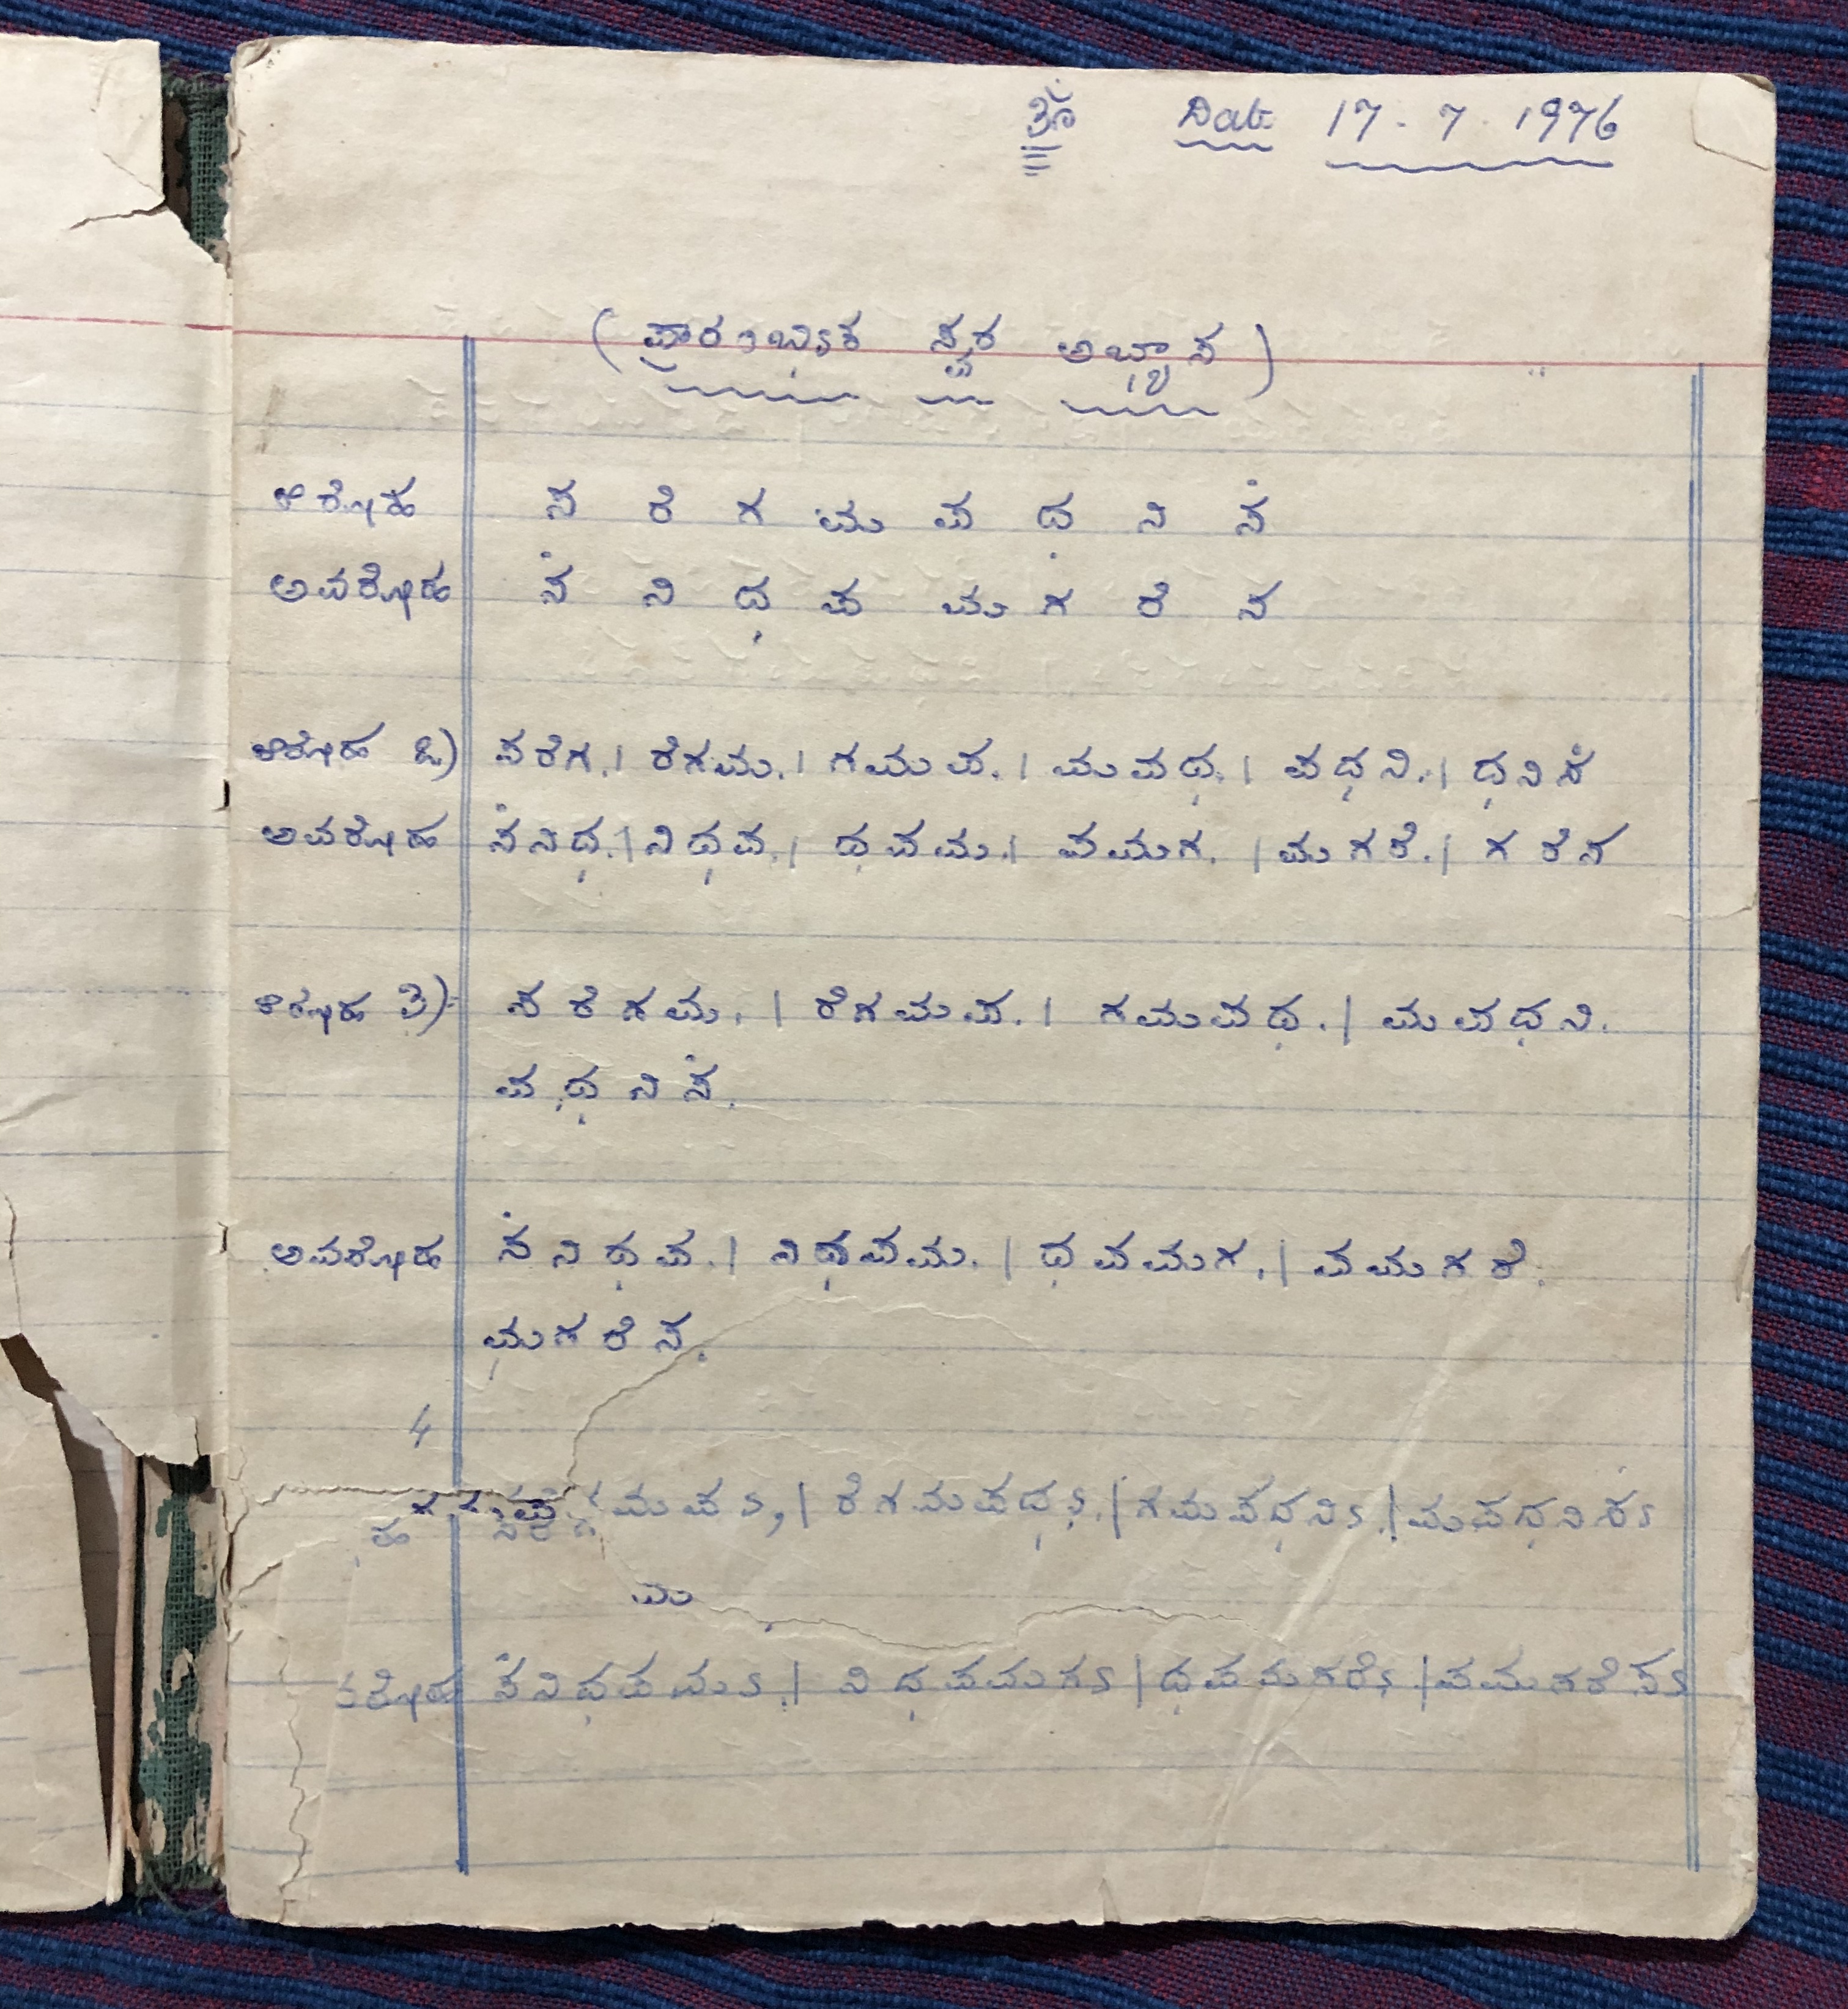 ಓಂ Date 17-7-1976
(ಪ್ರಾರಂಭಿಕ ಸ್ವರ ಅಭ್ಯಾಸ)
ಆರೋಹ ಸ ರೆ ಗ ಮ ಪ ದ ನಿ ಸಂ
ಅವರೋಹ ಸಂ ನಿ ಧ ಪ ಮ ಗ ರೆ ಸ
ಆರೋಹ ೩) ಸರೆಗ.। ರೆಗಮ.। ಗಮಪ.। ಮಪಧ.। ಪಧನಿ.। ಧನಿಸಂ
ಅವರೋಹ ಸಂನಿಧ.। ನಿಧಪ.। ಧಪಮ.। ಪಮಗ.। ಮಗರೆ.। ಗರೆಸ
ಆರೋಹ 3) ಸರೆಗಮ.। ರೆಗಮಪ.। ಗಮಪಧ.। ಮಪಧನಿ.
ಪಧನಿಸಂ.
ಅವರೋಹ ಸಂನಿಧಪ.। ನಿಧಪಮ.। ಧಪಮಗ.। ಪಮಗರೆ.
ಮಗರೆಸ.
4
ಹ ಸರೆಗಮಪs,। ರೆಗಮಪಧs.। ಗಮಪಧನಿs.। ಮಪಧನಿಸಂs
ಮ
ರೋಹ ಸಂನಿಧಪಮs.। ನಿಧಪಮಗs। ಧಪಮಗರೆs.। ಪಮಗರೆಸs